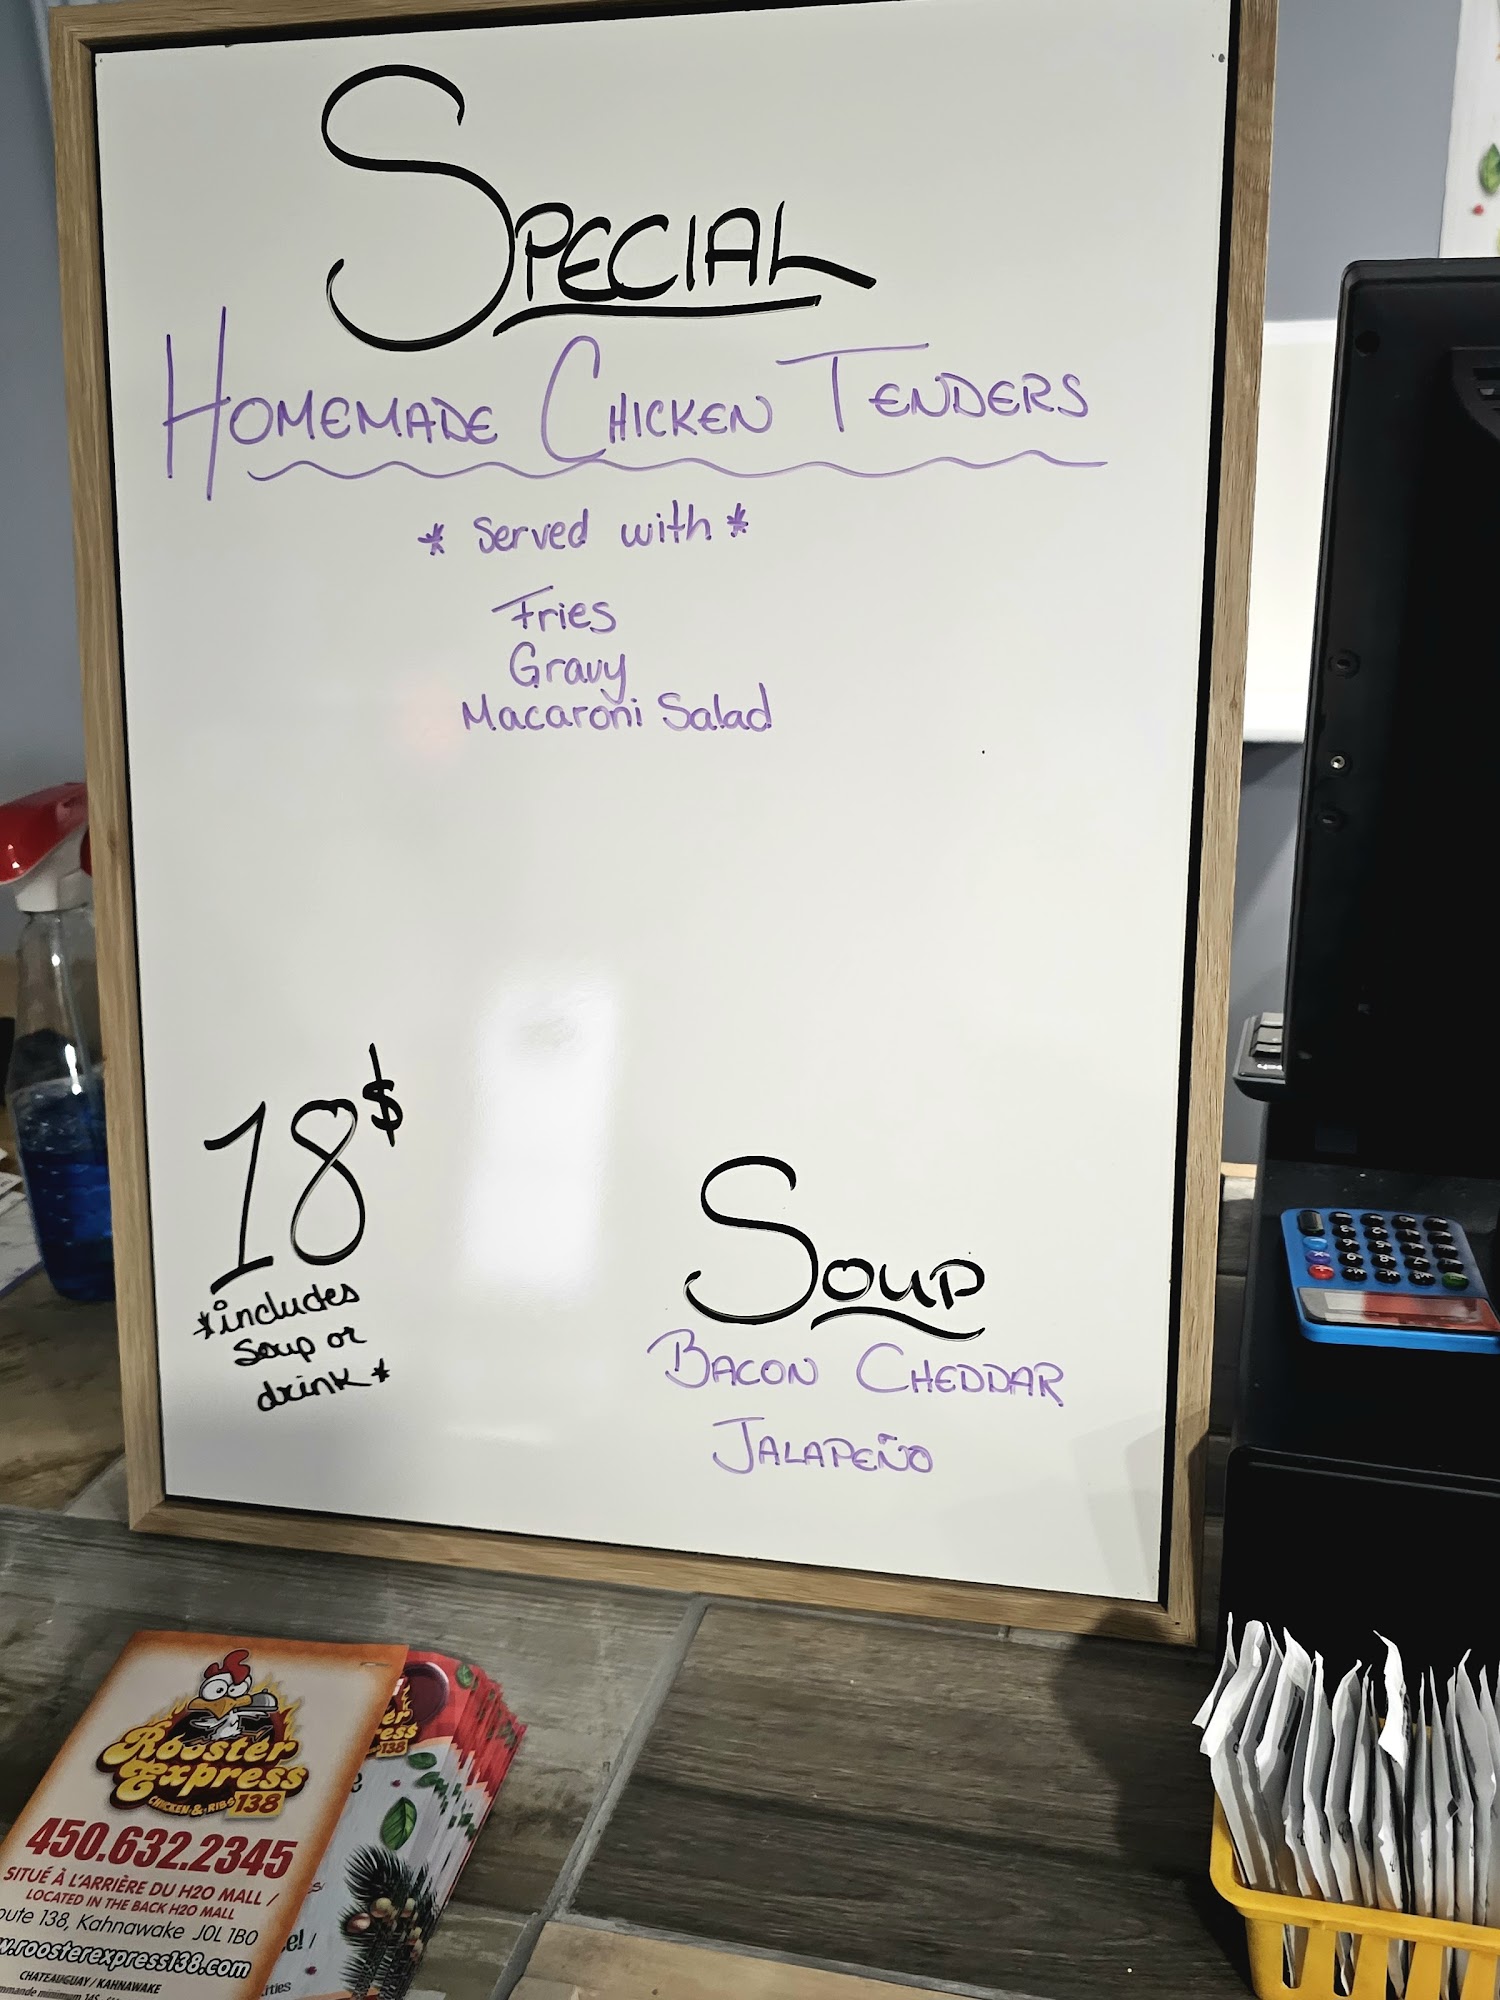 SPECIAL
HOMEMADE CHICKEN TENDERS
* Served with *
Fries
Gravy
Macaroni Salad
18$
*includes
Soup or
drink*
SOUP
BACON CHEDDAR
JALAPEÑO
Rooster
Express
CHICKEN & RIBS 138
450.632.2345
SITUÉ À L'ARRIÈRE DU H2O MALL /
LOCATED IN THE BACK H2O MALL
138, Kahnawake J0L 1B0
.roosterexpress138.com
CHATEAUGUAY / KAHNAWAKE